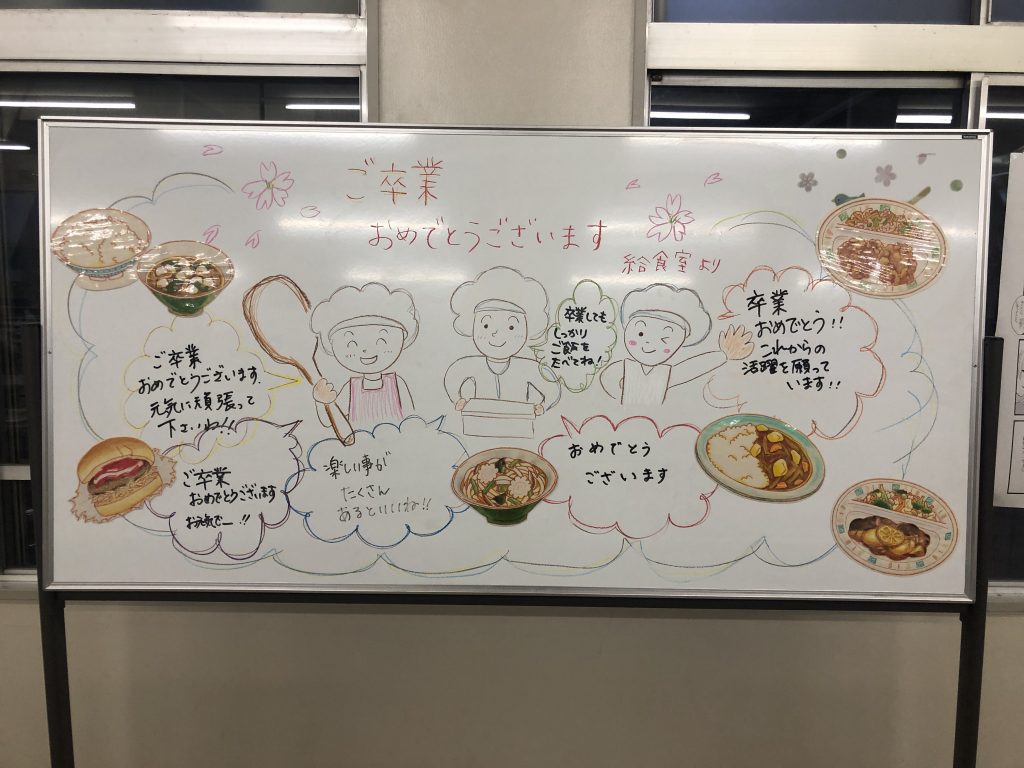 ご卒業
おめでとうございます
給食室より
ご卒業
おめでとうございます.
元気に頑張って
下さいね!!
卒業しても
しっかり
ご飯を
たべてね!
卒業
おめでとう!!
これからの
活躍を願って
います!!
ご卒業
おめでとうございます
お元気でー!!
楽しい事が
たくさん
あるといいね!!
おめでとう
ございます